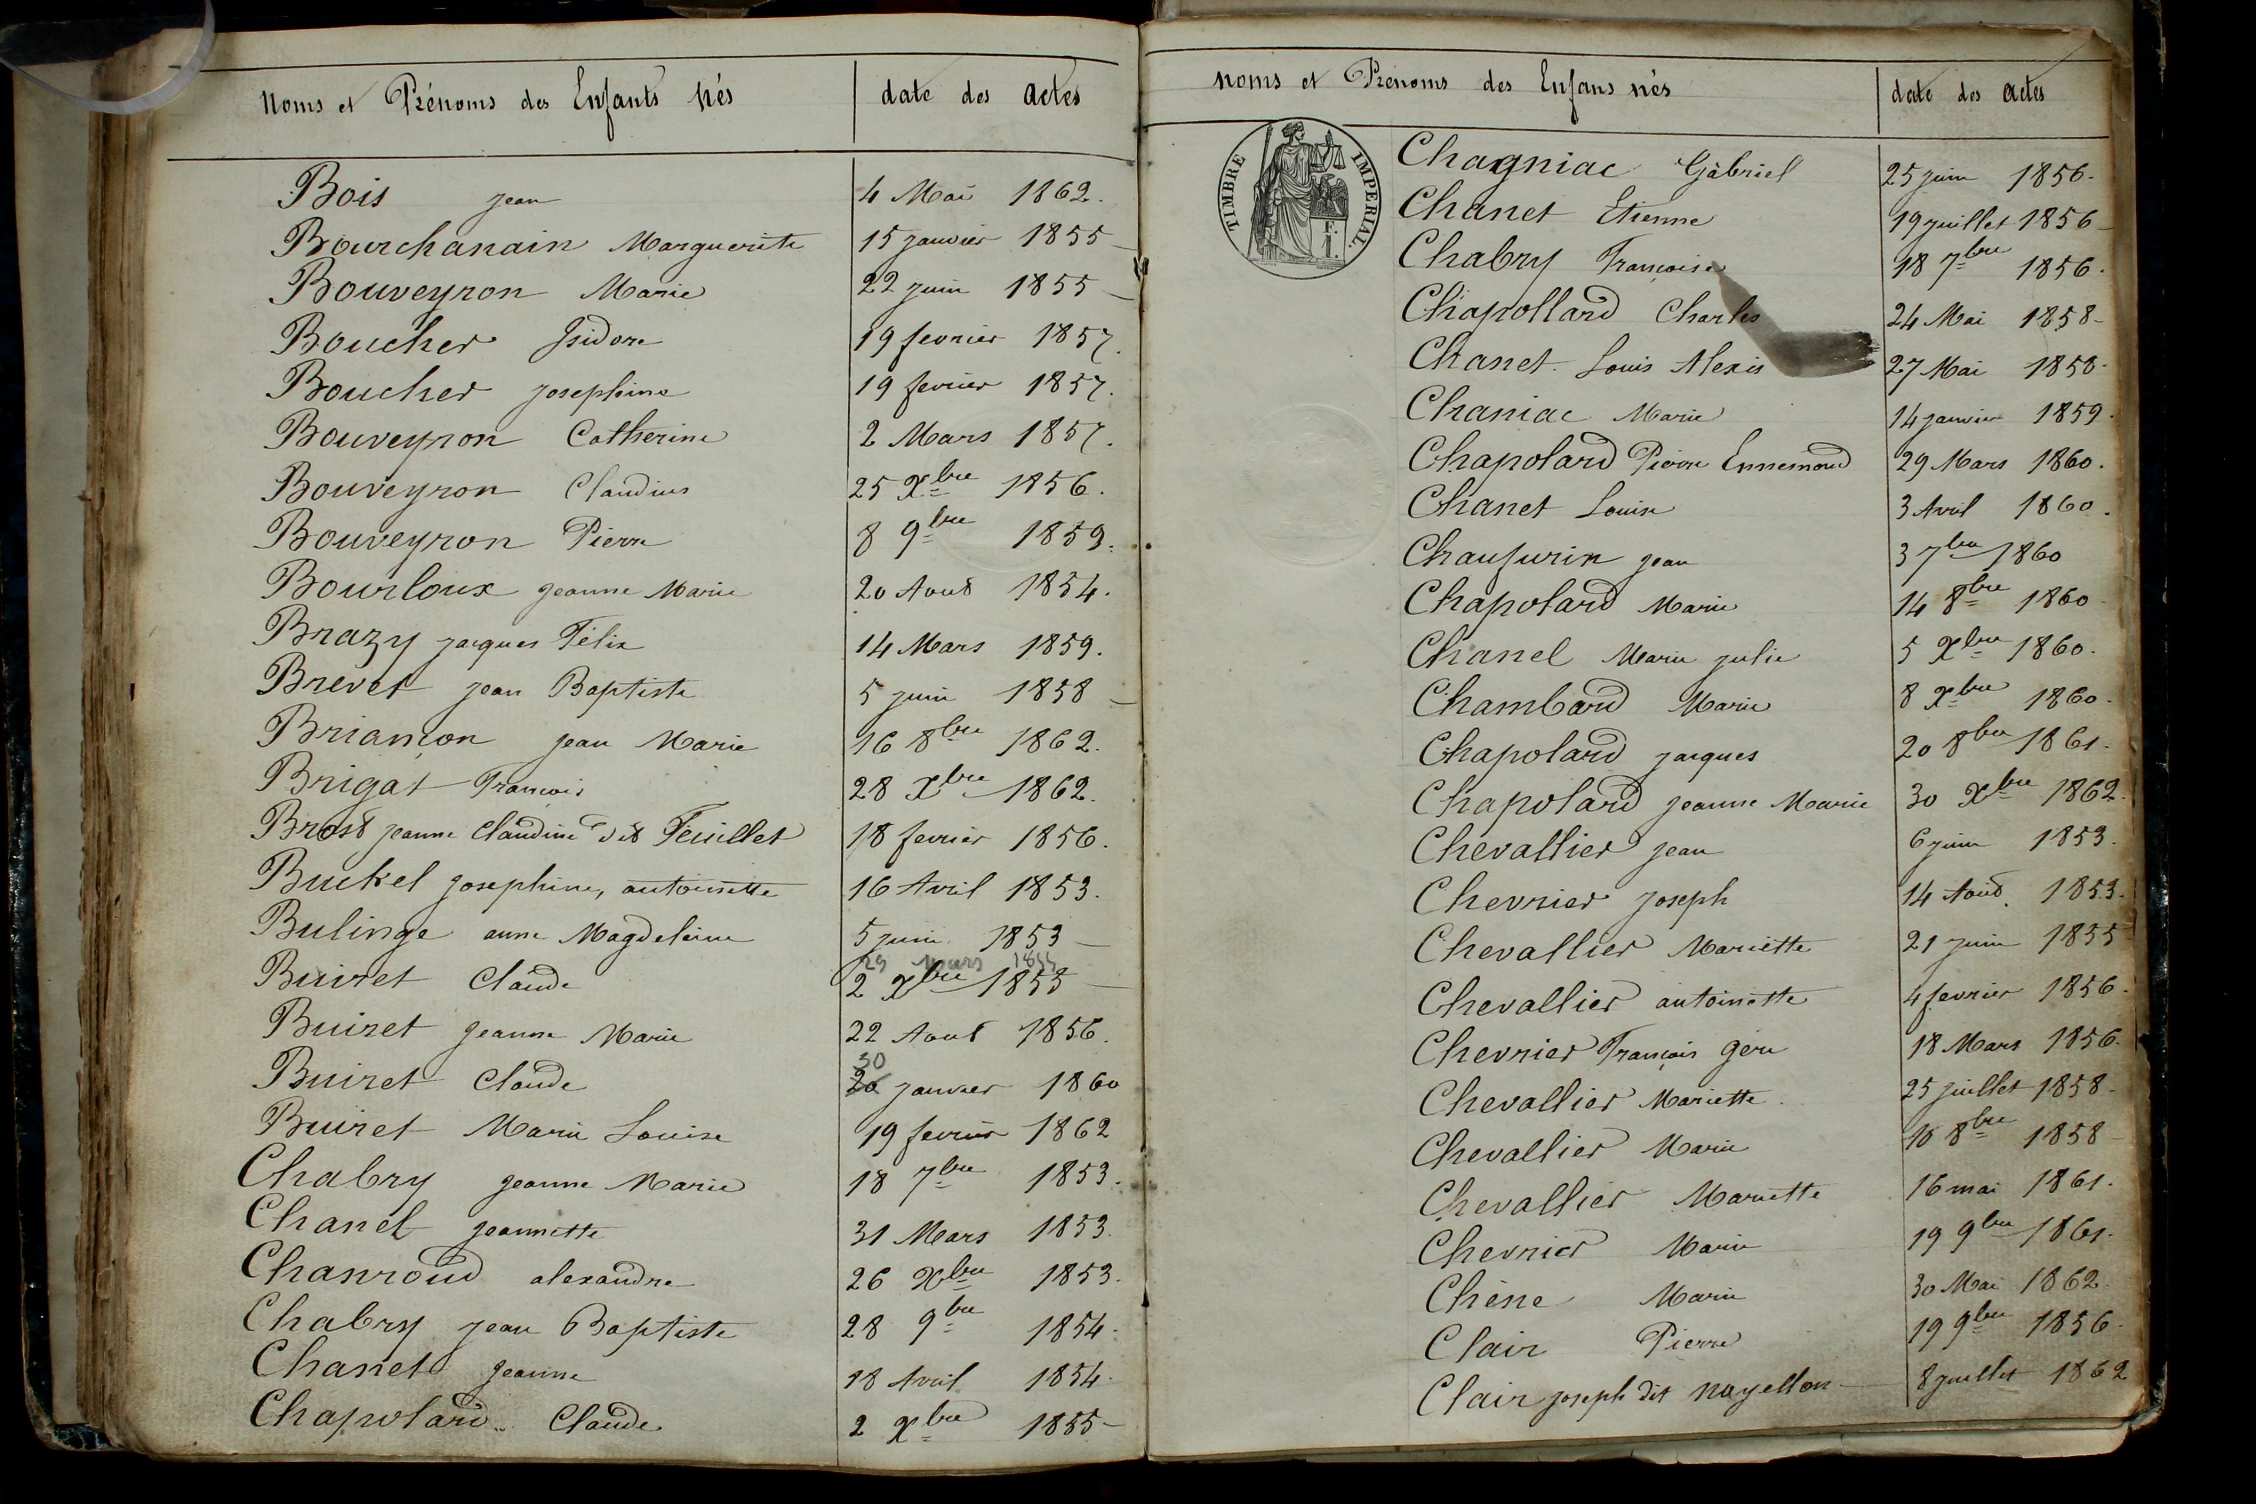 Noms et Prénoms des Enfants nés date des actes
Bois jean 4 Mai 1862.
Bourchanain Marguerite 15 janvier 1855
Bouveyron Marie 22 juin 1855
Boucher Isidore 19 fevrier 1857.
Boucher josephine 19 fevrier 1857.
Bouveyron Catherine 2 Mars 1857.
Bouveyron Claudius 25 Xbre 1856.
Bouveyron Pierre 8 9bre 1859.
Bourloux jeanne Marie 20 Aout 1854.
Brazy jacques Félix 14 Mars 1859.
Brevet jean Baptiste 5 juin 1858
Briançon jean Marie 16 8bre 1862.
Brigat François 28 Xbre 1862.
Brost jeanne Claudine dit Feuillet 18 fevrier 1856.
Buckel josephine, antoinette 16 Avril 1853.
Bulinge anne Magdeleine 5 juin 1853
29 mars 1855
Buiret Claude 2 Xbre 1855
Buiret jeanne Marie 22 Aout 1856.
30
Buiret Claude 20 janvier 1860
Buiret Marie Louise 19 fevrier 1862
Chabry jeanne Marie 18 7bre 1853.
Chanel jeannette 31 Mars 1853.
Chanroud alexandre 26 Xbre 1853.
Chabry jean Baptiste 28 9bre 1854.
Chanet jeanne 18 Avril 1854.
Chapolard Claude 2 Xbre 1855
noms et Prénoms des Enfans nés date des actes
TIMBRE IMPERIAL.
Chagniac Gabriel 25 juin 1856.
Chanet Etienne 19 juillet 1856
Chabry Françoise 18 7bre 1856.
Chapollard Charles 24 Mai 1858
Chanet Louis Alexis 27 Mai 1858.
Chaniac Marie 14 janvier 1859.
Chapolard Pierre Ennemond 29 Mars 1860.
Chanet Louise 3 Avril 1860.
Chaufurin jean 3 7bre 1860
Chapolard Marie 14 8bre 1860
Chanel Marie julie 5 Xbre 1860.
Chambard Marie 8 Xbre 1860.
Chapolard jacques 20 8bre 1861.
Chapolard jeanne Marie 30 Xbre 1862.
Chevallier jean 6 juin 1853.
Chevrier joseph 14 Aout 1853.
Chevallier Mariette 21 juin 1855
Chevallier antoinette 4 fevrier 1856.
Chevrier François 18 Mars 1856.
Chevallier Mariette 25 juillet 1858
Chevallier Marie 10 8bre 1858
Chevallier Mariette 16 mai 1861.
Chevrier Marie 19 9bre 1861.
Chène Marie 30 Mai 1862.
Clair Pierre 19 9bre 1856.
Clair joseph dit noyellon 8 juillet 1862